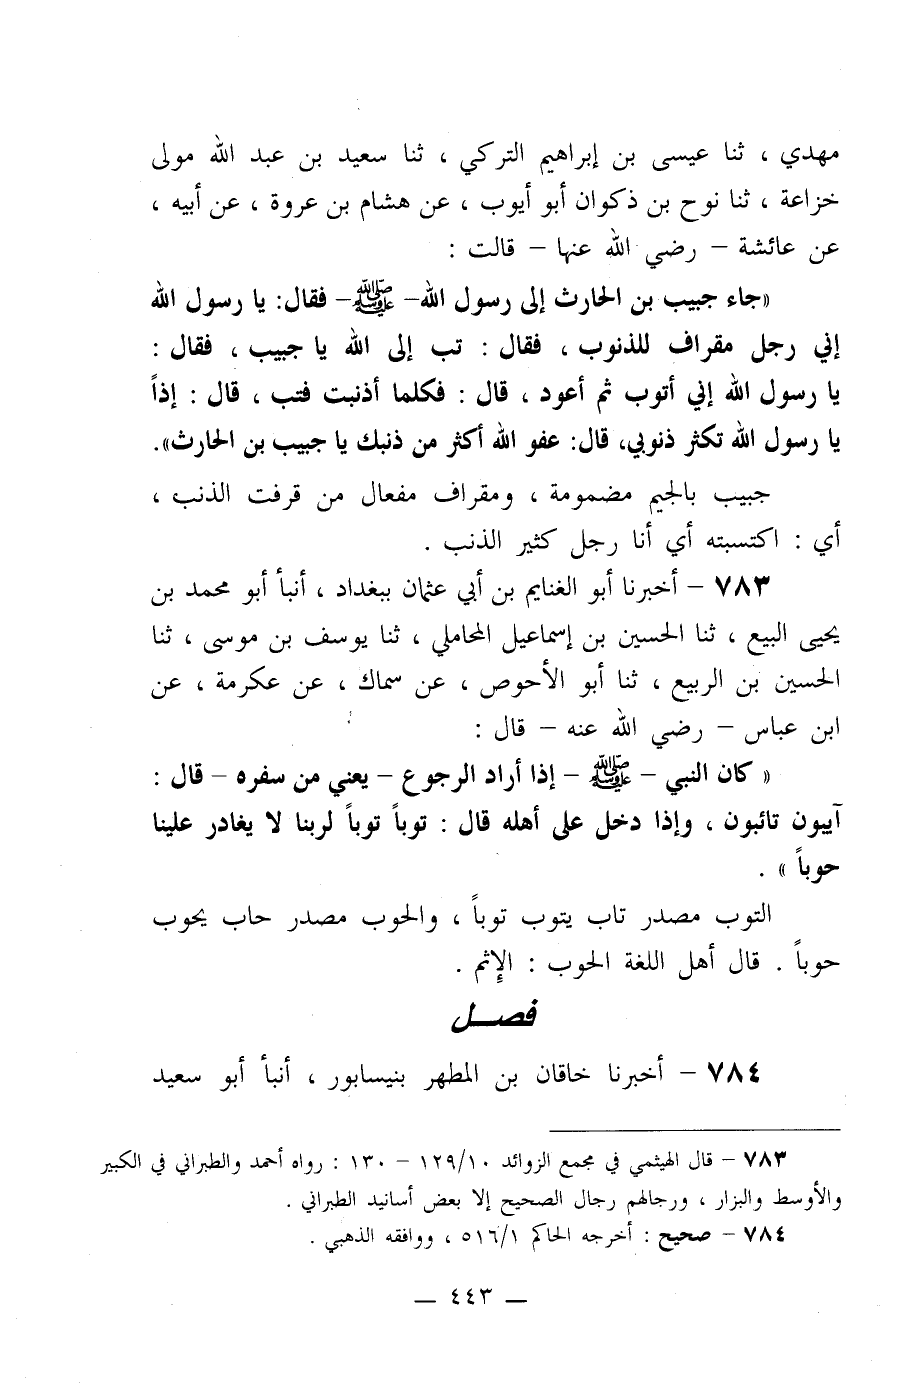 مهدي ، ثنا عيسى بن إبراهيم التركي ، ثنا سعيد بن عبد الله مولى
خزاعة ، ثنا نوح بن ذكوان أبو أيوب ، عن هشام بن عروة ، عن أبيه ،
عن عائشة – رضي الله عنها – قالت :
«جاء جبيب بن الحارث إلى رسول الله– ﷺ– فقال: يا رسول الله
إني رجل مقراف للذنوب ، فقال : تب إلى الله يا جبيب ، فقال :
يا رسول الله إني أتوب ثم أعود ، قال : فكلما أذنبت فتب ، قال : إذاً
يا رسول الله تكثر ذنوبي، قال: عفو الله أكثر من ذنبك يا جبيب بن الحارث».
جبيب بالجيم مضمومة ، ومقراف مفعال من قرفت الذنب ،
أي : اكتسبته أي أنا رجل كثير الذنب .
٧٨٣ – أخبرنا أبو الغنايم بن أبي عثمان ببغداد ، أنبأ أبو محمد بن
يحيى البيع ، ثنا الحسين بن إسماعيل المحاملي ، ثنا يوسف بن موسى ، ثنا
الحسين بن الربيع ، ثنا أبو الأحوص ، عن سماك ، عن عكرمة ، عن
ابن عباس – رضي الله عنه – قال :
« كان النبي – ﷺ – إذا أراد الرجوع – يعني من سفره – قال :
آيبون تائبون ، وإذا دخل على أهله قال : توباً توباً لربنا لا يغادر علينا
حوباً » .
التوب مصدر تاب يتوب توباً ، والحوب مصدر حاب يحوب
حوباً . قال أهل اللغة الحوب : الإثم .
فصـــل
٧٨٤ – أخبرنا خاقان بن المطهر بنيسابور ، أنبأ أبو سعيد
٧٨٣ – قال الهيثمي في مجمع الزوائد ١٢٩/١٠ – ١٣٠ : رواه أحمد والطبراني في الكبير
والأوسط والبزار ، ورجالهم رجال الصحيح إلا بعض أسانيد الطبراني .
٧٨٤ – صحيح : أخرجه الحاكم ٥١٦/١ ، ووافقه الذهبي .
– ٤٤٣ –